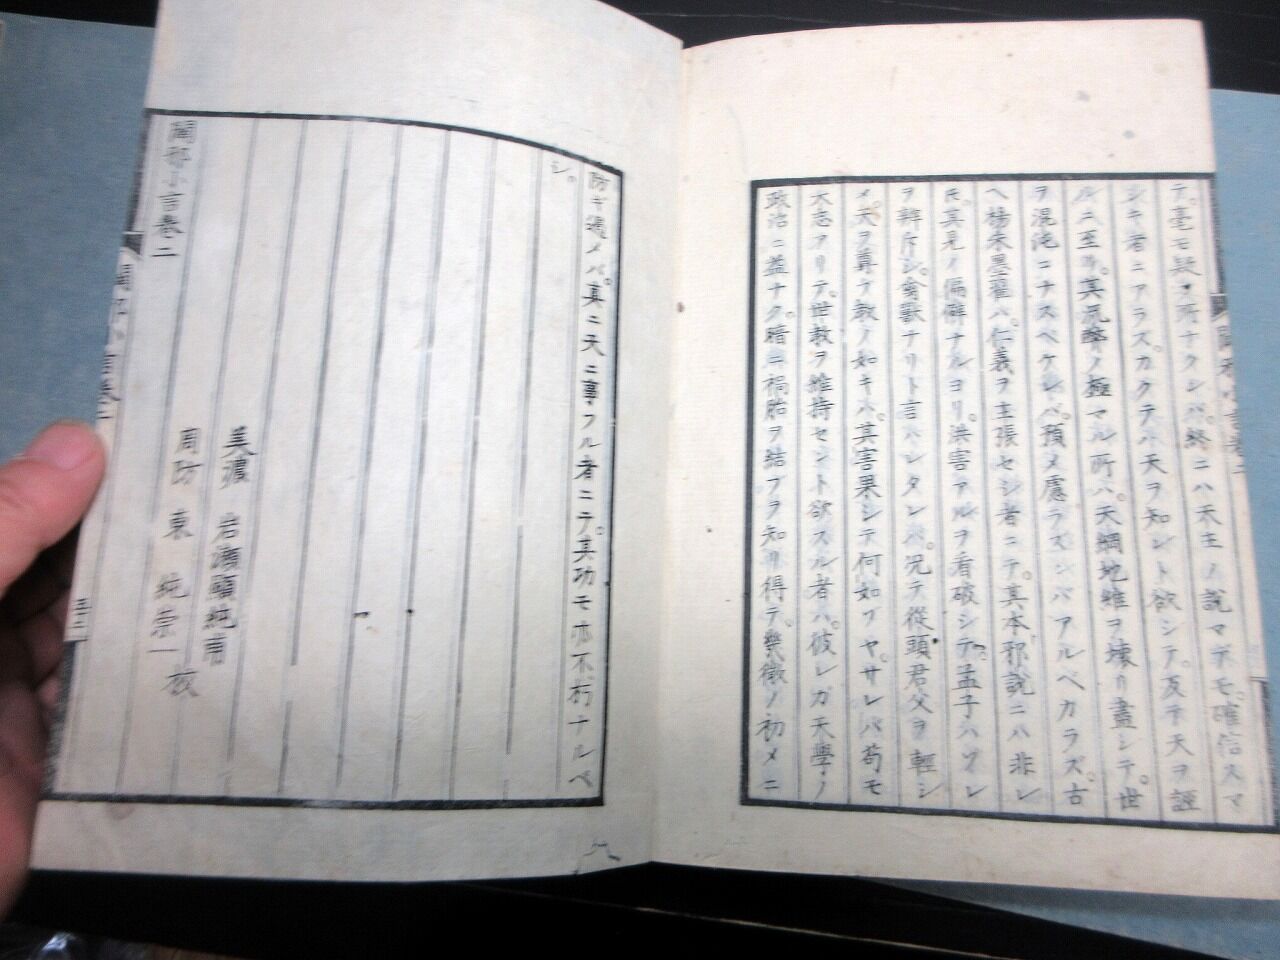 テ。毫モ疑フ所ナクンバ。終ニハ天主ノ説マデモ。確信スマ
ジキ者ニアラズ。カクテハ天ヲ知ント欲シテ。反テ天ヲ誣
ルニ至リ。其沉醉ノ極マル所ハ。天綱地維ヲ壊リ盡シテ。世
ヲ混沌ニナスベケレバ。預メ慮ラズンバアルベカラズ。古
ヘ楊朱墨翟ハ。仁義ヲ主張セシ者ニテ。其本邪説ニハ非レ
𪜈。其見ノ偏僻ナルヨリ。洪害アルヲ看破シテ。孟子ハコレ
ヲ辯斥シ。禽獸ナリト言ハレタレバ。況テ從頭君父ヲ輕シ
メ。天ヲ尊ブ教ノ如キハ。其害果シテ何如ゾヤ。サレバ苟モ
大志アリテ。世教ヲ維持セント欲スル者ハ。彼レガ天學ノ
政治ニ益ナク。暗ニ禍胎ヲ結ブヲ知リ得テ。幾微ノ初メニ
防ギ遏メバ。真ニ天ニ事フル者ニテ。其功モ亦不朽ナルベ
シ。
美濃 岩瀬顕純甫
周防 東 純崇一 校
闢邪小言巻二
闢邪小言巻二